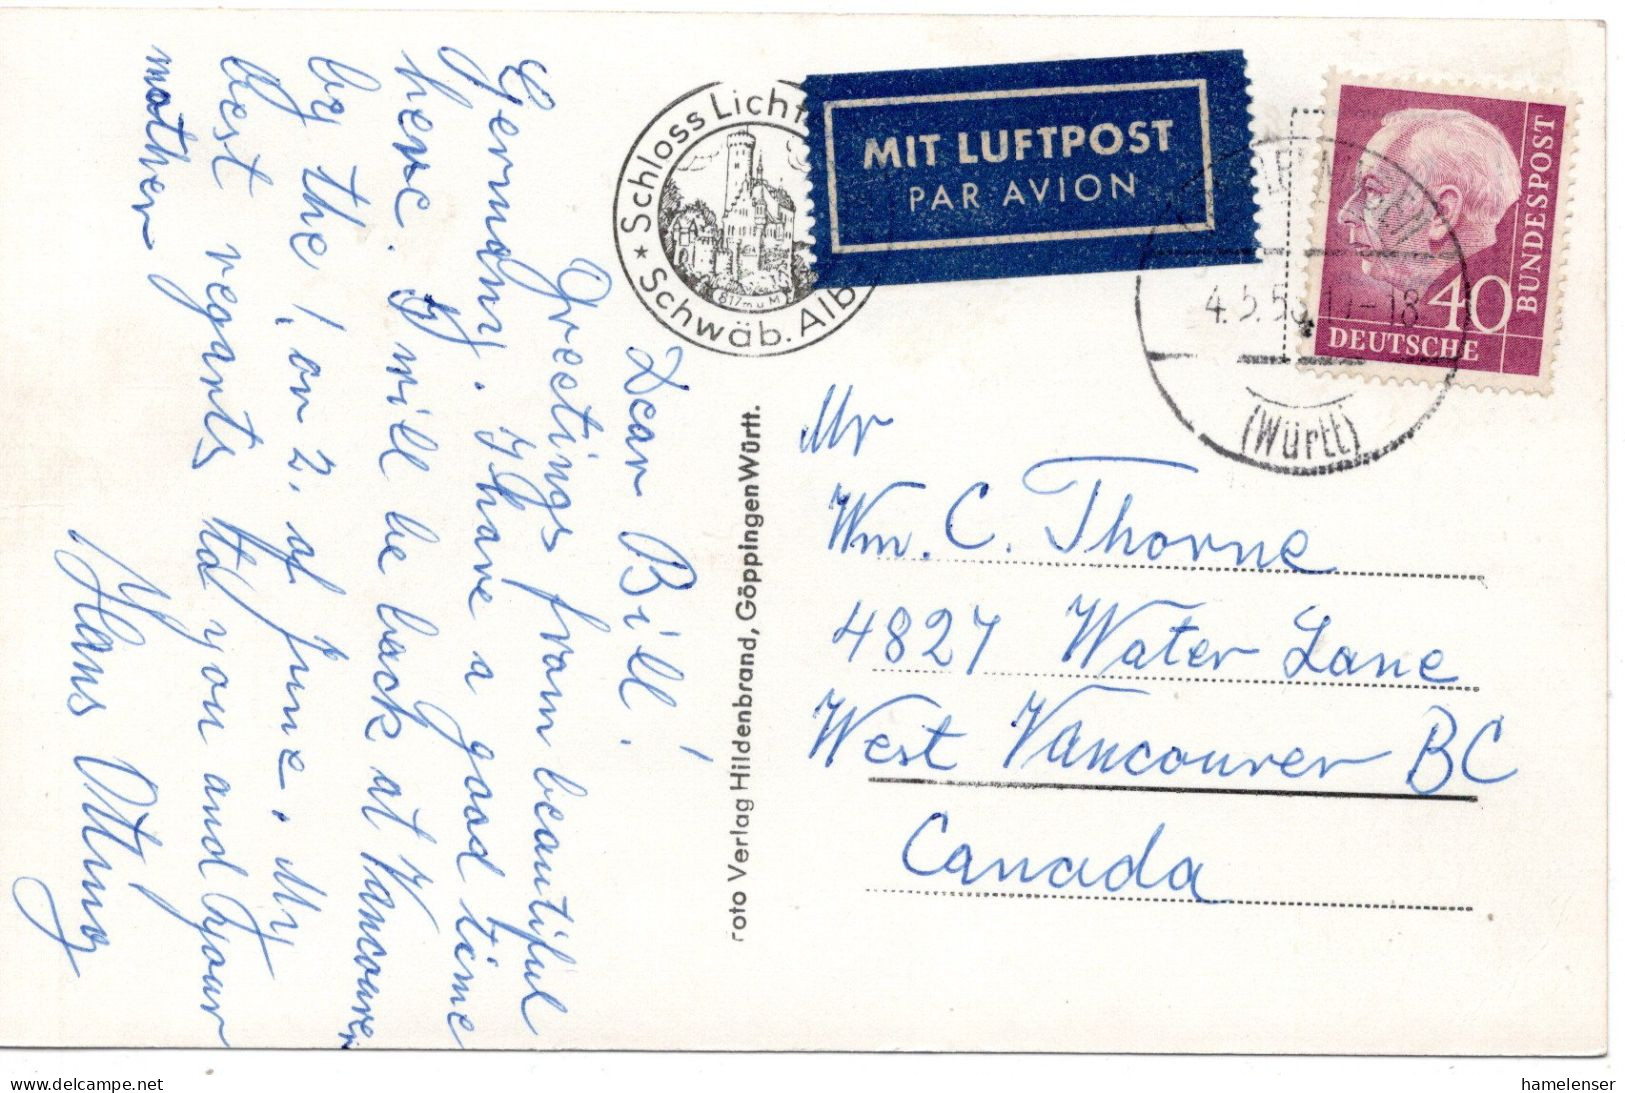 Dear Bill!
Greetings from beautiful
Germany. I have a good time
here. I will be back at Vancouver
by the 1, or 2. of June. My
best regarts to you and your
mother
Hans Otting
★ Schloss Licht
★ Schwäb. Alb
817m ü M
MIT LUFTPOST
PAR AVION
DEUTSCHE
BUNDESPOST
40
4.5.56.17-18
(Württ)
roto Verlag Hildenbrand, Göppingen Württ.
Mr
Wm. C. Thorne
4827 Water Lane
West Vancouver BC
Canada
hamelenser
www.delcampe.net